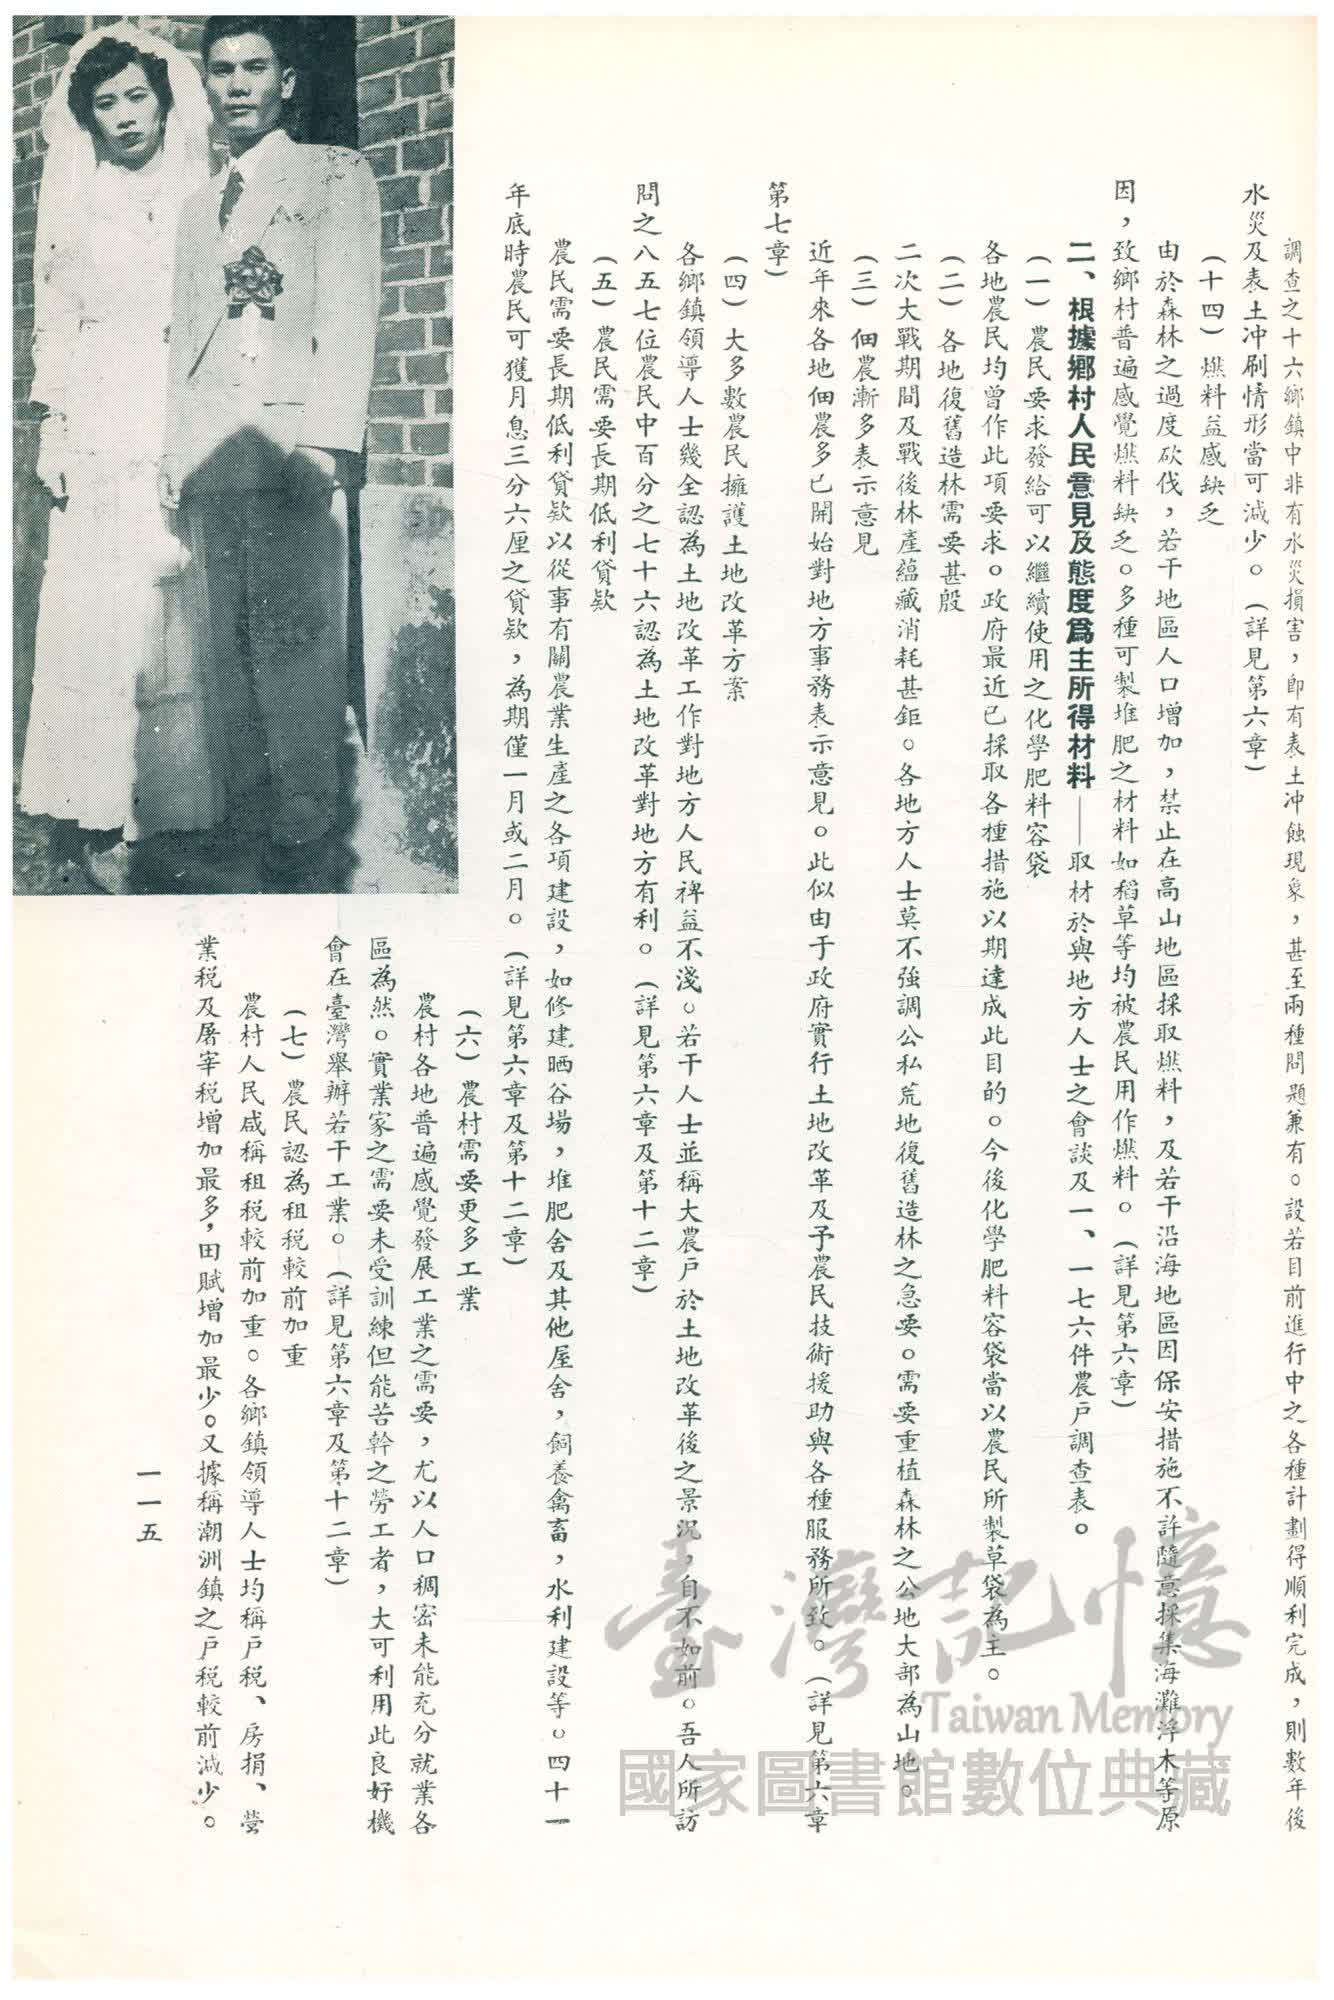 調查之十六鄉鎮中非有水災損害，卽有表土冲蝕現象，甚至兩種問題兼有。設若目前進行中之各種計劃得順利完成，則數年後
水災及表土冲刷情形當可減少。（詳見第六章）
（十四）燃料益感缺乏
由於森林之過度砍伐，若干地區人口增加，禁止在高山地區採取燃料，及若干沿海地區因保安措施不許隨意採集海灘浮木等原
因，致鄉村普遍感覺燃料缺乏。多種可製堆肥之材料如稻草等均被農民用作燃料。（詳見第六章）
二、根據鄉村人民意見及態度爲主所得材料——取材於與地方人士之會談及一、一七六件農戶調查表。
（一）農民要求發給可以繼續使用之化學肥料容袋
各地農民均曾作此項要求。政府最近已採取各種措施以期達成此目的。今後化學肥料容袋當以農民所製草袋為主。
（二）各地復舊造林需要甚殷
二次大戰期間及戰後林產蘊藏消耗甚鉅。各地方人士莫不強調公私荒地復舊造林之急要。需要重植森林之公地大部為山地。
（三）佃農漸多表示意見
近年來各地佃農多已開始對地方事務表示意見。此似由于政府實行土地改革及予農民技術援助與各種服務所致。（詳見第六章
第七章）
（四）大多數農民擁護土地改革方案
各鄉鎮領導人士幾全認為土地改革工作對地方人民裨益不淺。若干人士並稱大農戶於土地改革後之景況，自不如前。吾人所訪
問之八五七位農民中百分之七十六認為土地改革對地方有利。（詳見第六章及第十二章）
（五）農民需要長期低利貸款
農民需要長期低利貸款以從事有關農業生產之各項建設，如修建晒谷場，堆肥舍及其他屋舍，飼養禽畜，水利建設等。四十一
年底時農民可獲月息三分六厘之貸款，為期僅一月或二月。（詳見第六章及第十二章）
（六）農村需要更多工業
農村各地普遍感覺發展工業之需要，尤以人口稠密未能充分就業各
區為然。實業家之需要未受訓練但能苦幹之勞工者，大可利用此良好機
會在臺灣舉辦若干工業。（詳見第六章及第十二章）
（七）農民認為租稅較前加重
農村人民咸稱租稅較前加重。各鄉鎮領導人士均稱戶稅、房捐、營
業稅及屠宰稅增加最多，田賦增加最少。又據稱潮洲鎮之戶稅較前減少。
一一五
臺灣記憶
Taiwan Memory
國家圖書館數位典藏